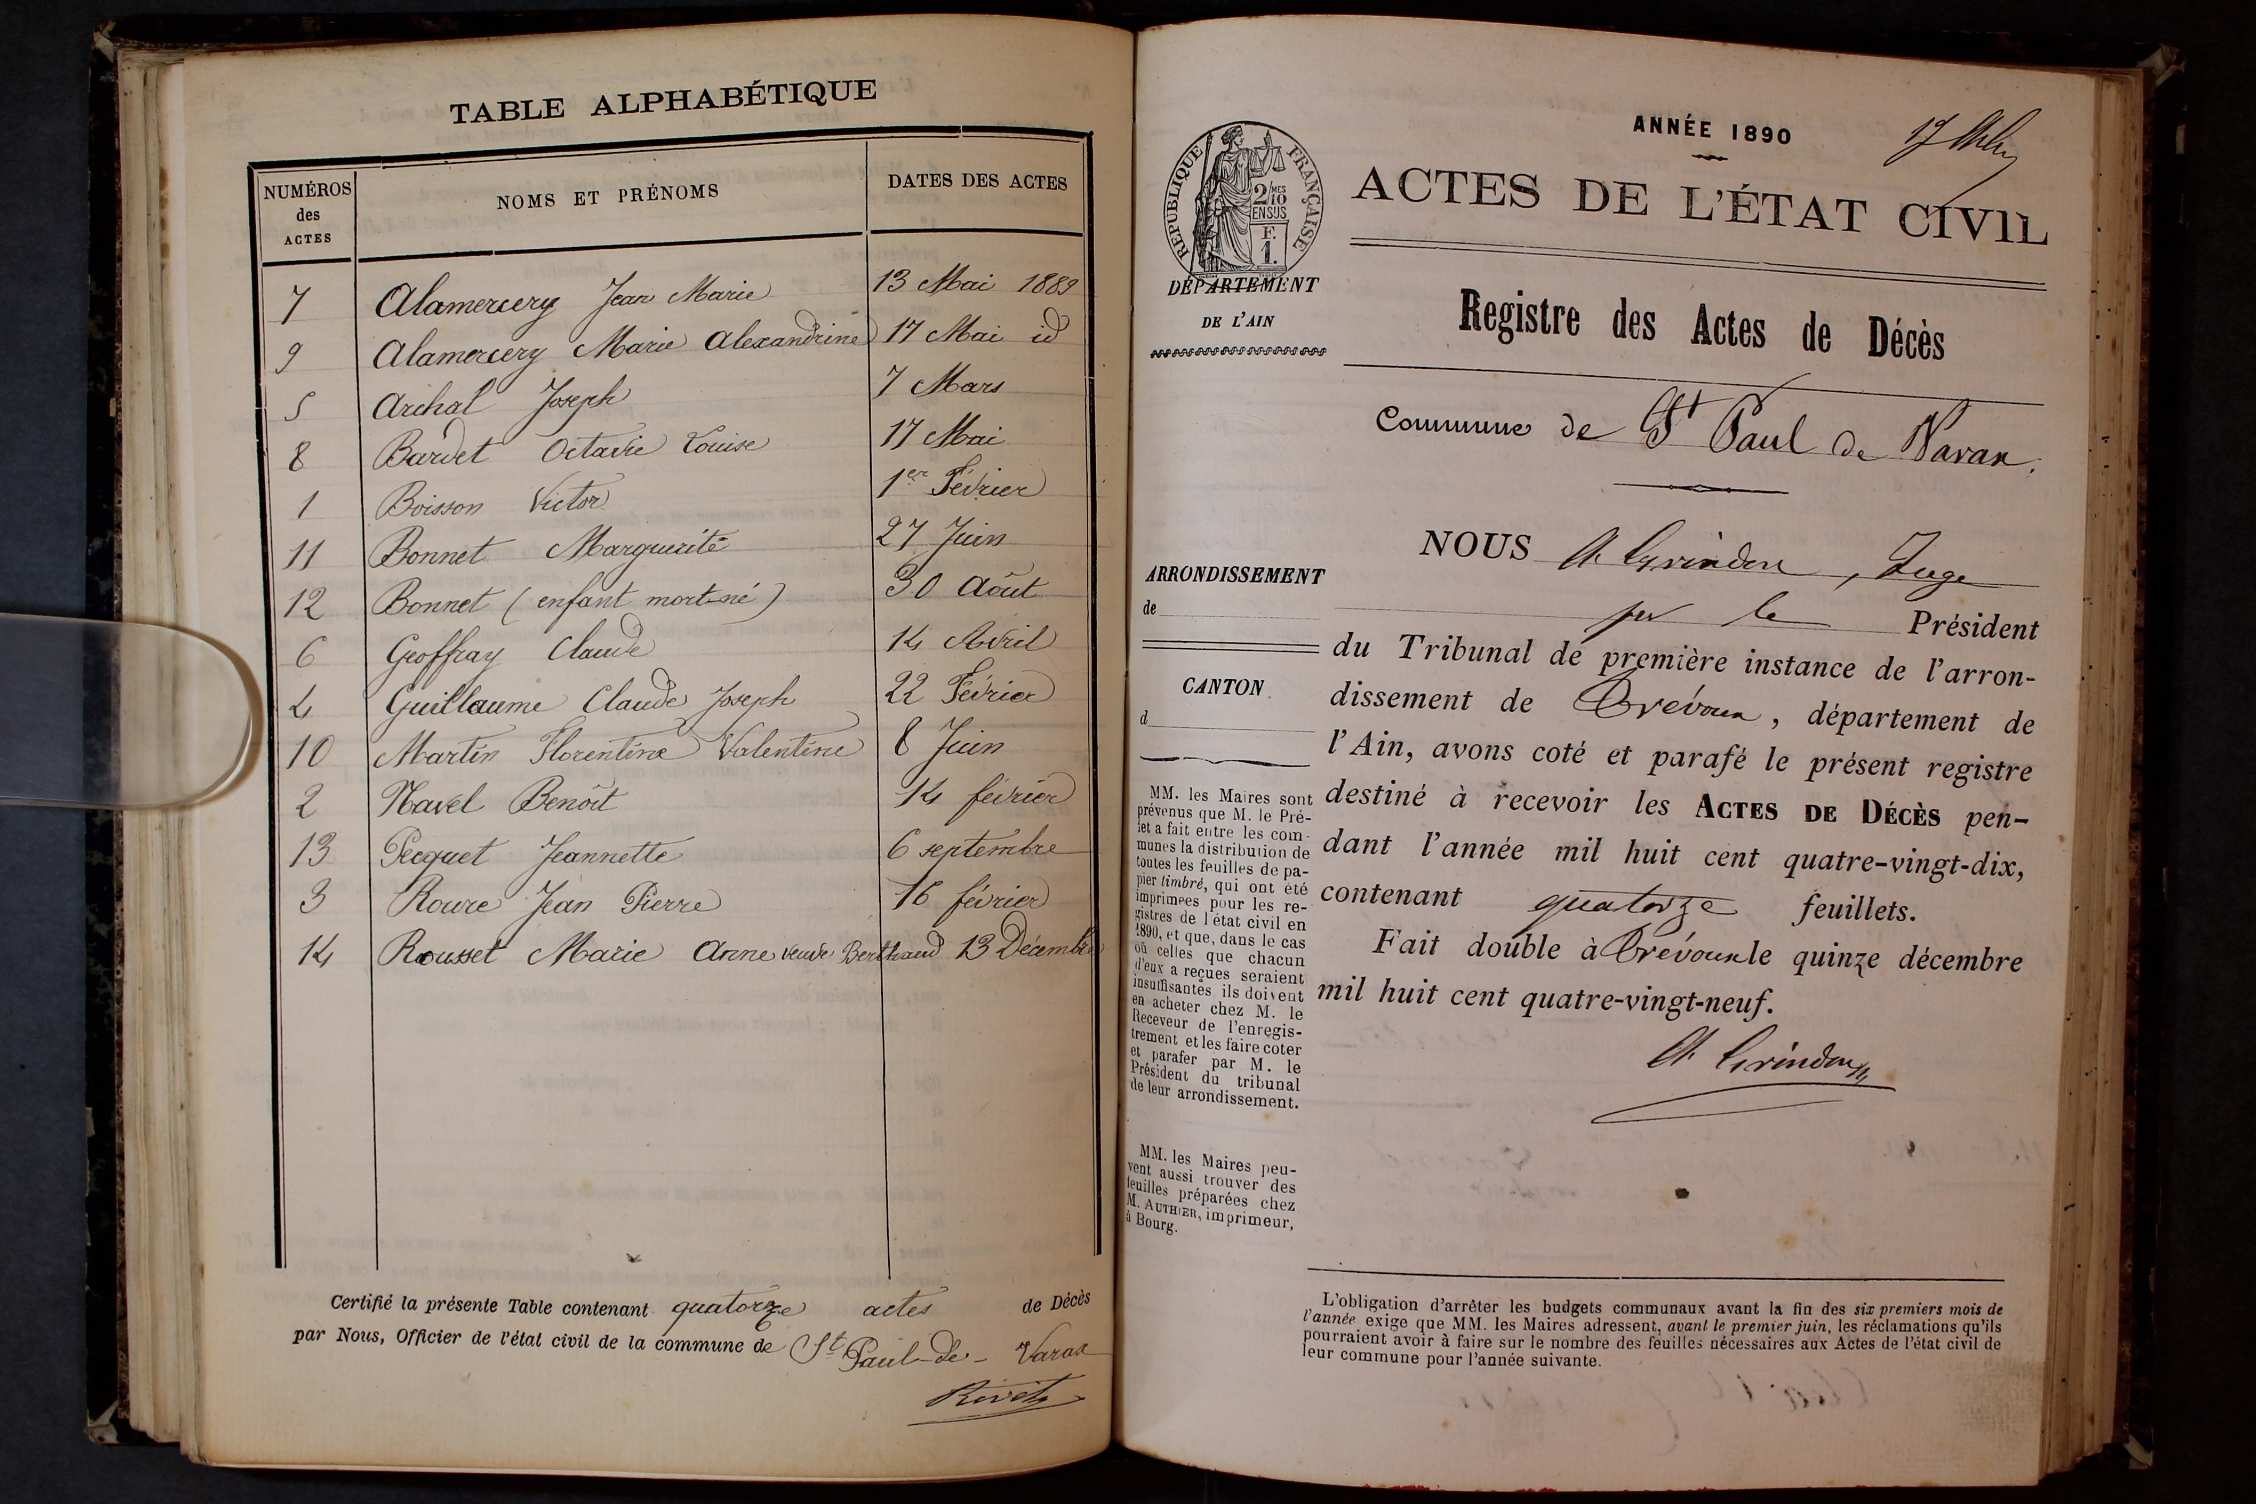 TABLE ALPHABÉTIQUE
NUMÉROS des ACTES NOMS ET PRÉNOMS DATES DES ACTES
7 Alamercery Jean Marie 13 Mai 1889
9 Alamercery Marie Alexandrine 17 Mai id
5 Archal Joseph 7 Mars
8 Bardet Octavie Louise 17 Mai
1 Boisson Victor 1er Février
11 Bonnet Marguerite 27 Juin
12 Bonnet (enfant mort-né) 30 Août
6 Geoffray Claude 14 Avril
4 Guillaume Claude Joseph 22 Février
10 Martin Florentine Valentine 8 Juin
2 Navel Benoît 14 février
13 Pecquet Jeannette 6 septembre
3 Roure Jean Pierre 16 février
14 Rousset Marie Anne veuve Berthaud 13 Décembre
Certifié la présente Table contenant quatorze actes de Décès
par Nous, Officier de l'état civil de la commune de St Paul-de-Varax
Rivet
ANNÉE 1890
RÉPUBLIQUE FRANÇAISE
2/10 MES
EN SUS
F.
1.
ACTES DE L'ÉTAT CIVIL
DÉPARTEMENT
DE L'AIN
Registre des Actes de Décès
Commune de St Paul de Varax.
NOUS A Grindon, Juge
pr le Président
du Tribunal de première instance de l'arron-
dissement de Trévoux, département de
l'Ain, avons coté et parafé le présent registre
destiné à recevoir les ACTES DE DÉCÈS pen-
dant l'année mil huit cent quatre-vingt-dix,
contenant quatorze feuillets.
Fait double à Trévoux le quinze décembre
mil huit cent quatre-vingt-neuf.
A Grindon
ARRONDISSEMENT
de
CANTON
d
MM. les Maires sont
prévenus que M. le Pré-
fet a fait entre les com-
munes la distribution de
toutes les feuilles de pa-
pier timbré, qui ont été
imprimées pour les re-
gistres de l'état civil en
1890, et que, dans le cas
où celles que chacun
d'eux a reçues seraient
insuffisantes ils doivent
en acheter chez M. le
Receveur de l'enregis-
trement et les faire coter
et parafer par M. le
Président du tribunal
de leur arrondissement.
MM. les Maires peu-
vent aussi trouver des
feuilles préparées chez
M. AUTHIER, imprimeur,
à Bourg.
L'obligation d'arrêter les budgets communaux avant la fin des six premiers mois de
l'année exige que MM. les Maires adressent, avant le premier juin, les réclamations qu'ils
pourraient avoir à faire sur le nombre des feuilles nécessaires aux Actes de l'état civil de
leur commune pour l'année suivante.